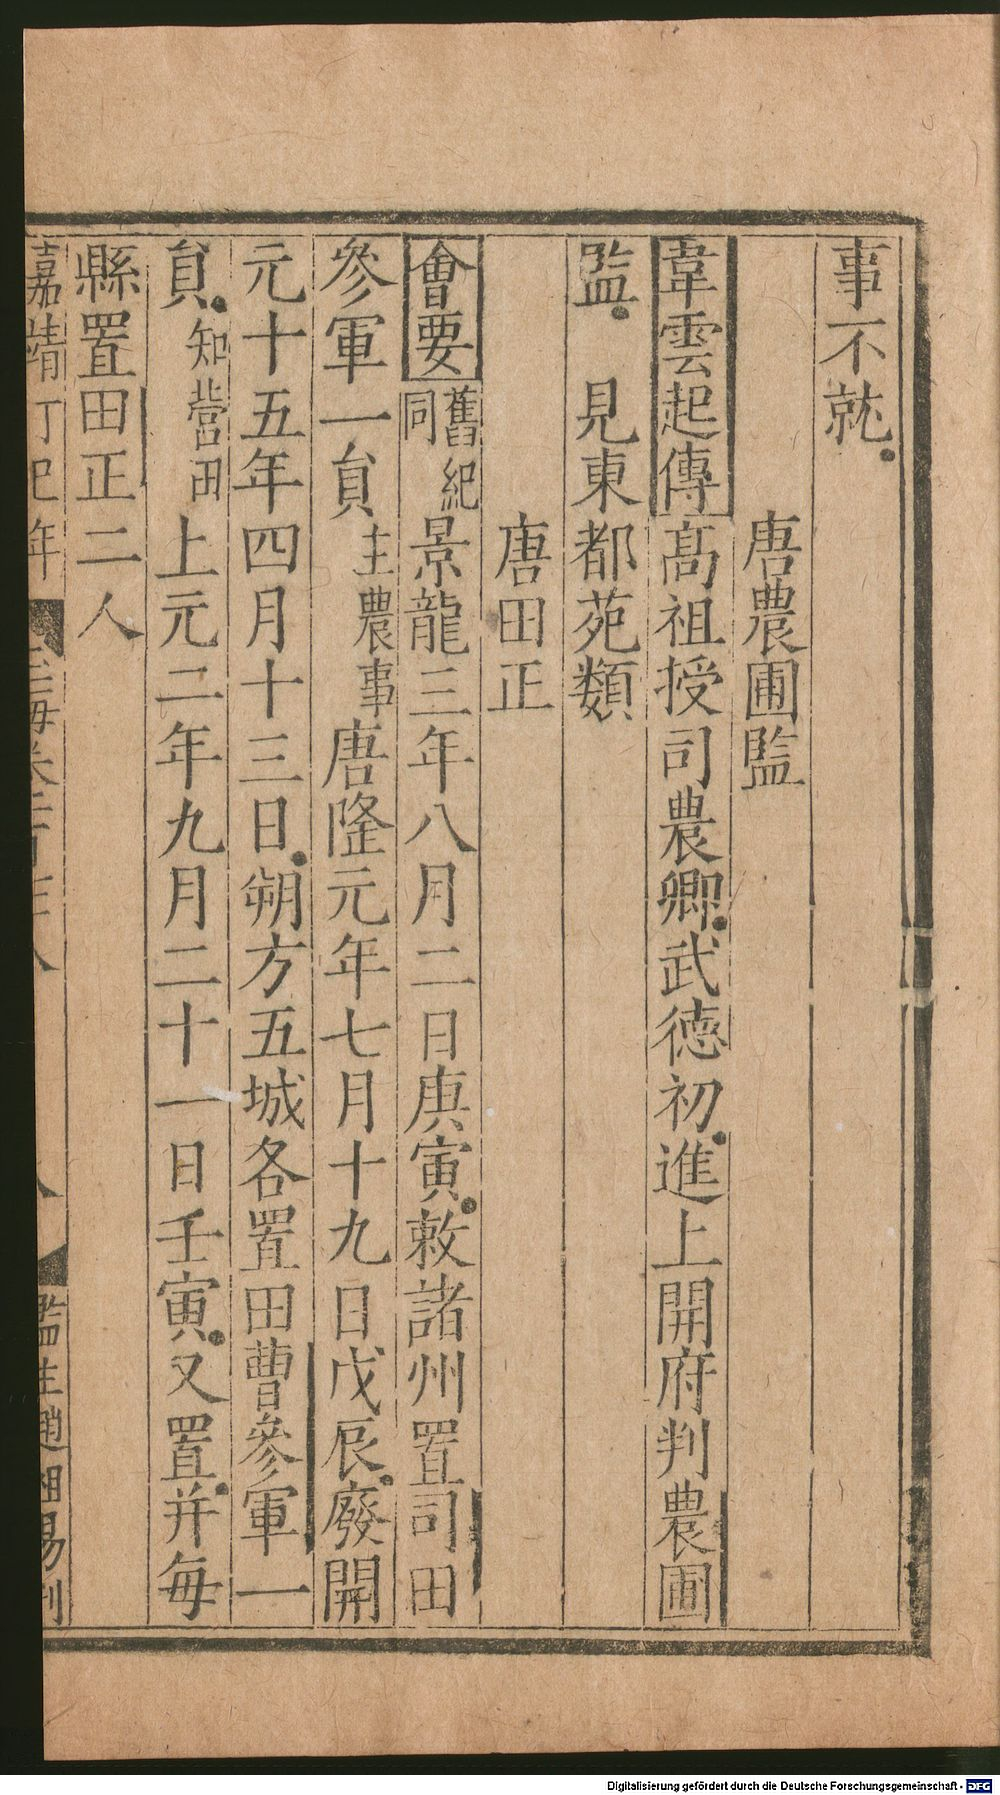 事不就
唐農圃監
韋雲起傳高祖授司農卿武徳初進上開府判農圃
監　見東都苑類
唐田正
會要舊紀同景龍三年八月二日庚寅敕諸州置司田
參軍一貟主農事唐隆元年七月十九日戊辰廢開
元十五年四月十三日朔方五城各置田曹參軍一
貟知營田上元二年九月二十一日壬寅又置并每
縣置田正二人
嘉靖丁巳年 玉海卷 八 監生趙 易刊
Digitalisierung gefördert durch die Deutsche Forschungsgemeinschaft - DFG